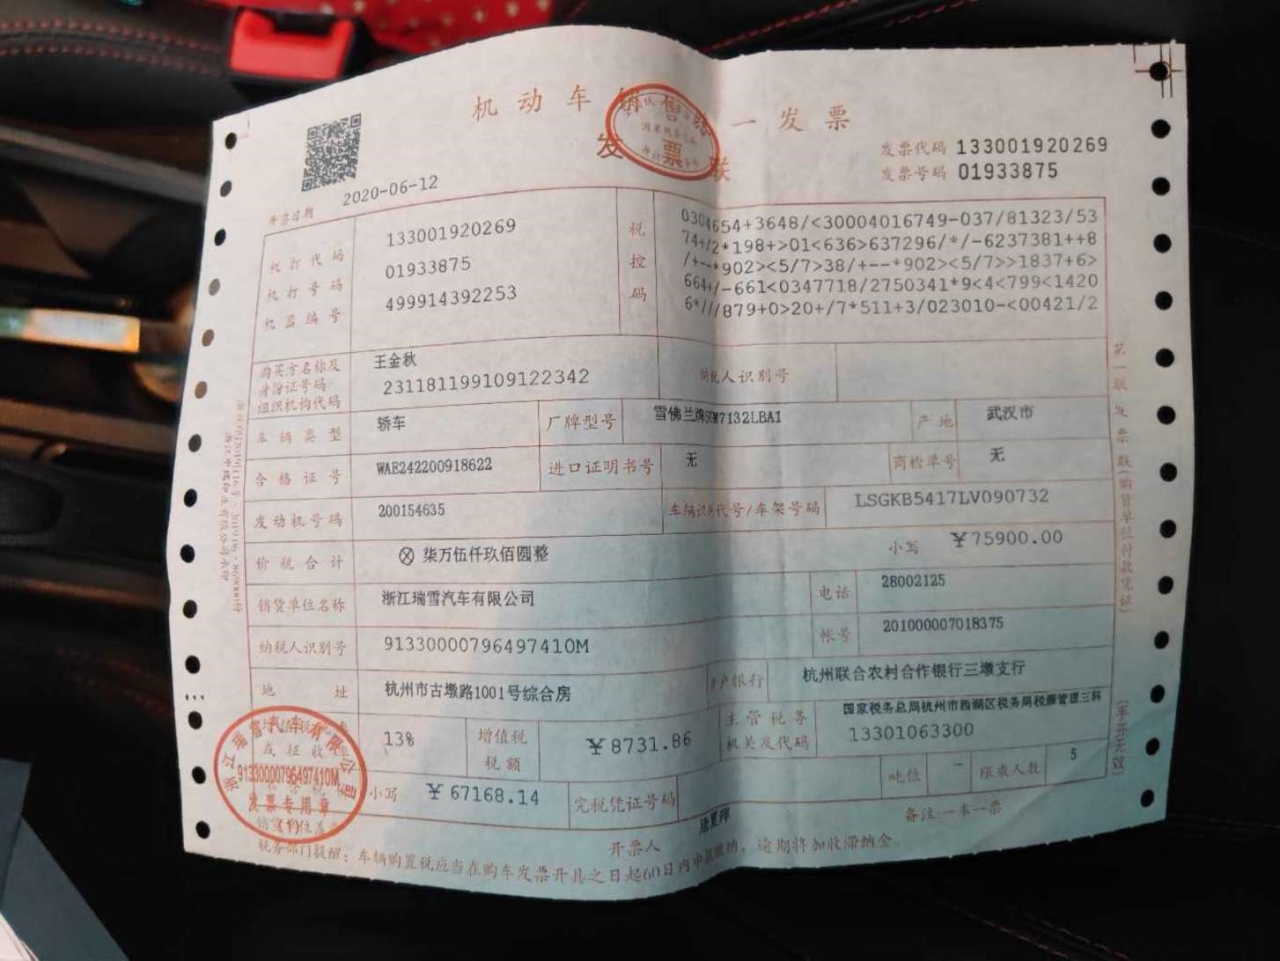 机动车销售统一发票
发票联
发票代码 133001920269
发票号码 01933875
开票日期 2020-06-12
机打代码 133001920269
机打号码 01933875
机器编号 499914392253
税控码
0304654+3648/<30004016749-037/81323/53
74+/2*198+>01<636>637296/*/-6237381++8
/+--*902><5/7>38/+--*902><5/7>>1837+6>
664+/-661<0347718/2750341*9<4<799<1420
6*///879+0>20+/7*511+3/023010-<00421/2
购买方名称及身份证号码/组织机构代码
王金秋
231181199109122342
纳税人识别号
车辆类型 轿车 厂牌型号 雪佛兰牌SGM7132LBA1 产地 武汉市
合格证号 WAE242200918622 进口证明书号 无 商检单号 无
发动机号码 200154635 车辆识别代号/车架号码 LSGKB5417LV090732
价税合计 ⊗柒万伍仟玖佰圆整 小写 ¥75900.00
销货单位名称 浙江瑞雪汽车有限公司 电话 28002125
纳税人识别号 91330000796497410M 帐号 201000007018375
地址 杭州市古墩路1001号综合房 开户银行 杭州联合农村合作银行三墩支行
13% 增值税税额 ¥8731.86 主管税务机关及代码 国家税务总局杭州市西湖区税务局税源管理三科
13301063300
小写 ¥67168.14 完税凭证号码 吨位 - 限乘人数 5
浙江瑞雪汽车有限公司
91330000796497410M
发票专用章
开票人 备注:一车一票
税务部门提醒:车辆购置税应当在购车发票开具之日起60日内申报缴纳。逾期将加收滞纳金。
第一联 发票联(购货单位付款凭证)
(手开无效)